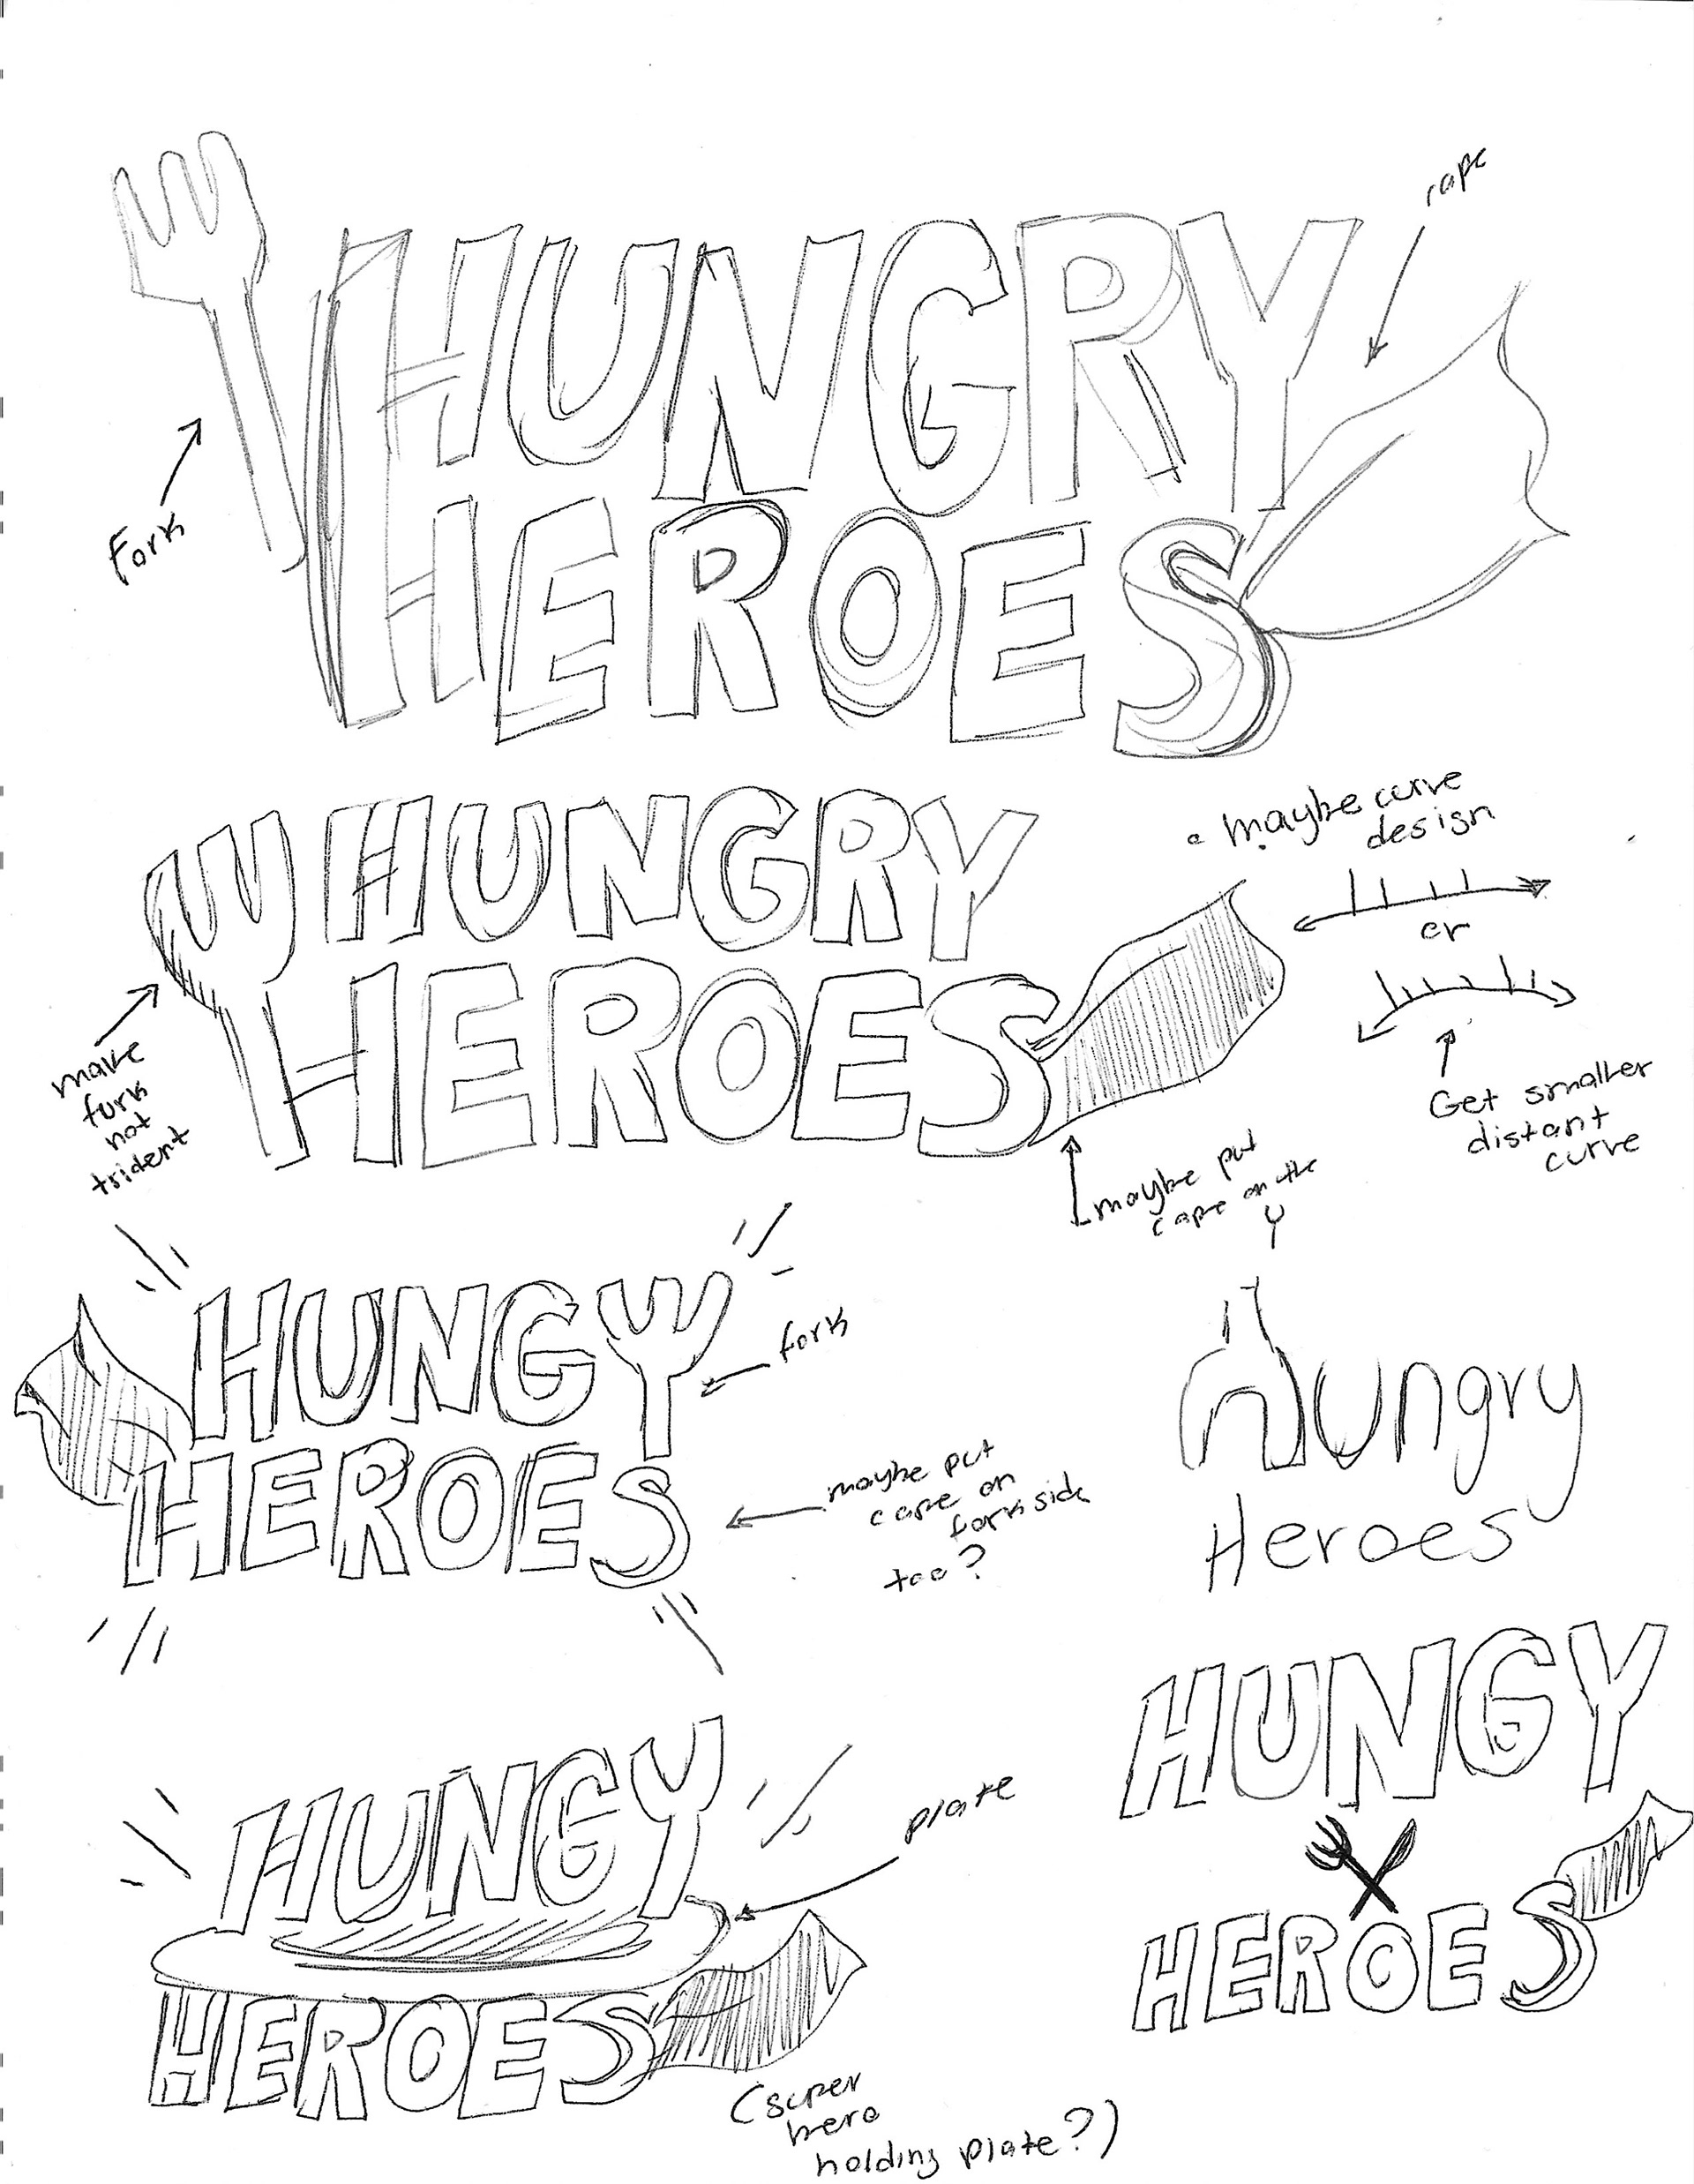 cape
HUNGRY
HEROES
Fork
HUNGRY
HEROES
make
fork
not
trident
maybe curve
design
or
Get smaller
distant
curve
maybe put
cape on the
Y
HUNGY
HEROES
fork
maybe put
cape on
fork side
too?
Hungry
Heroes
HUNGY
HEROES
plate
(super
hero
holding plate?)
HUNGY
HEROES